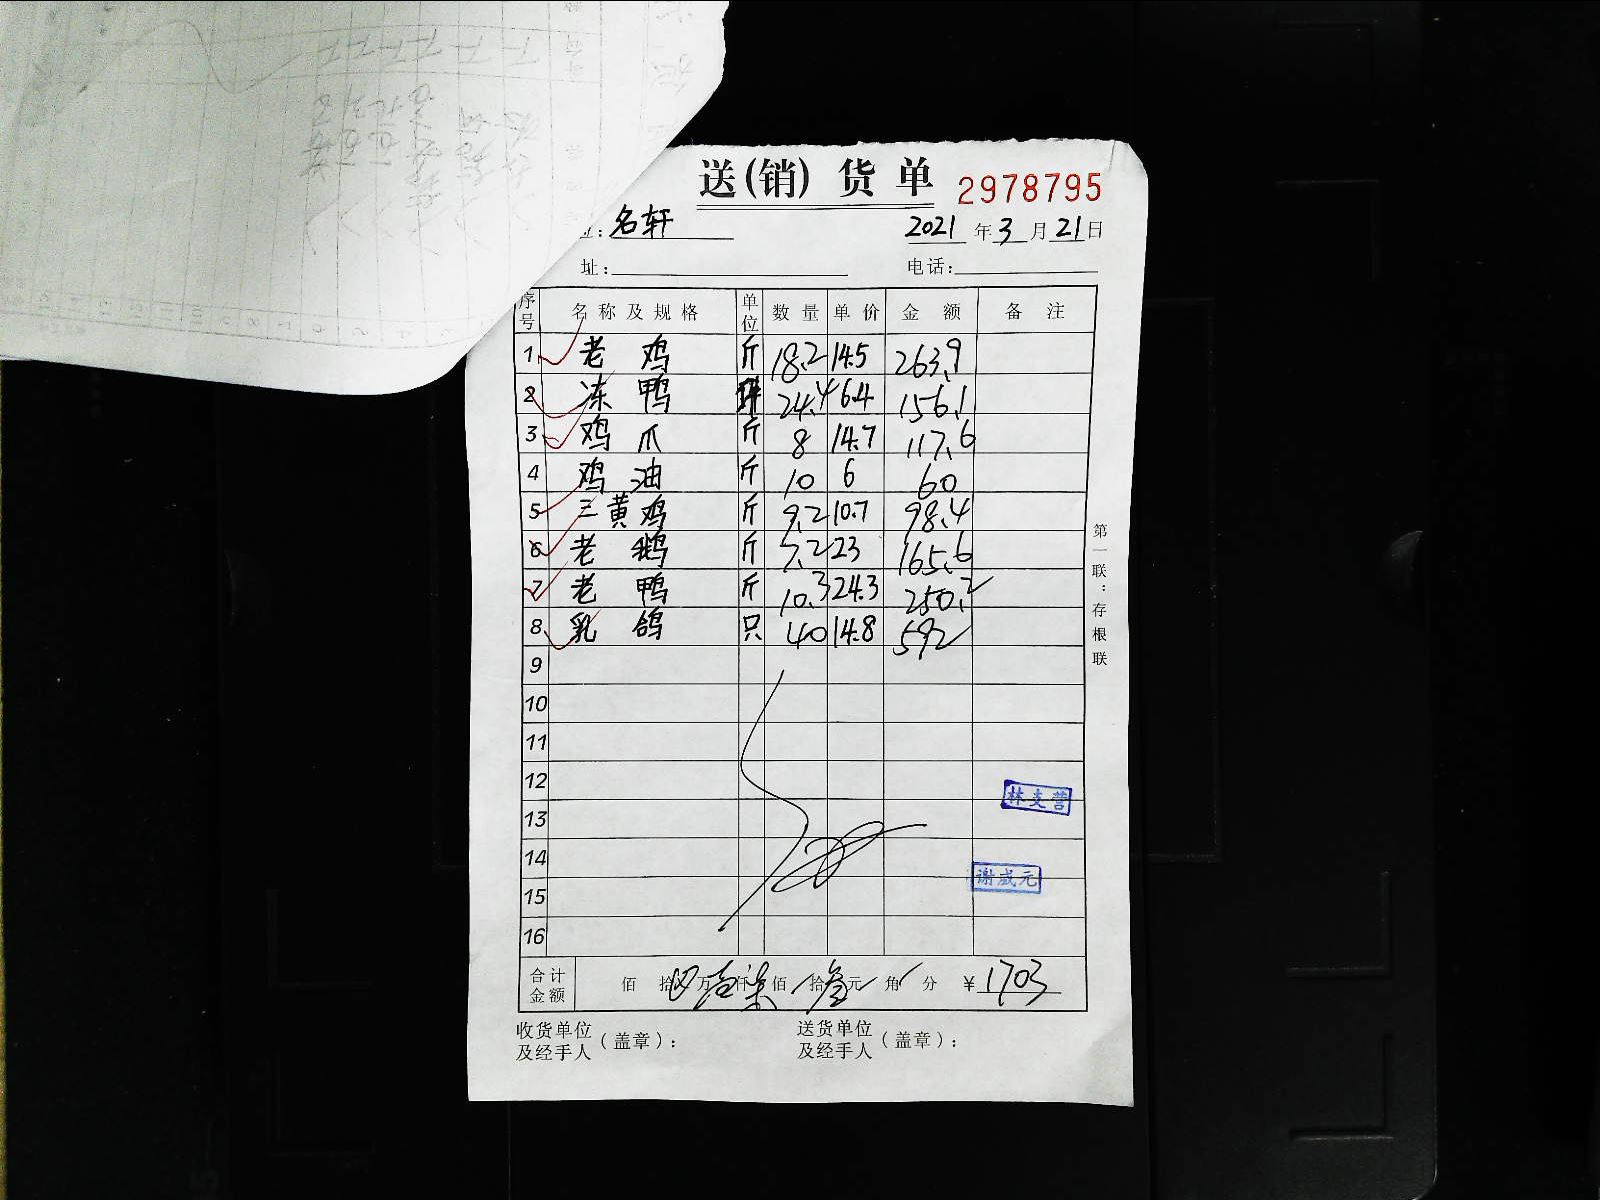 送(销)货单 2978795
名轩 2021年3月21日
址: 电话:
序号 名称及规格 单位 数量 单价 金额 备注
1 老鸡 斤 18.2 14.5 263.9
2 冻鸭 24.4 6.4 156.1
3 鸡爪 斤 8 14.7 117.6
4 鸡油 斤 10 6 60
5 三黄鸡 斤 9.2 10.7 98.4
6 老鹅 斤 7.2 23 165.6
7 老鸭 斤 10.3 24.3 250.2
8 乳鸽 只 40 14.8 592
9
10
11
12
林支营
13
14
谢成元
15
16
合计金额 佰 拾 万 壹 仟 柒 佰 拾 叁 元 角 分 ¥1703
收货单位及经手人(盖章): 送货单位及经手人(盖章):
第一联:存根联